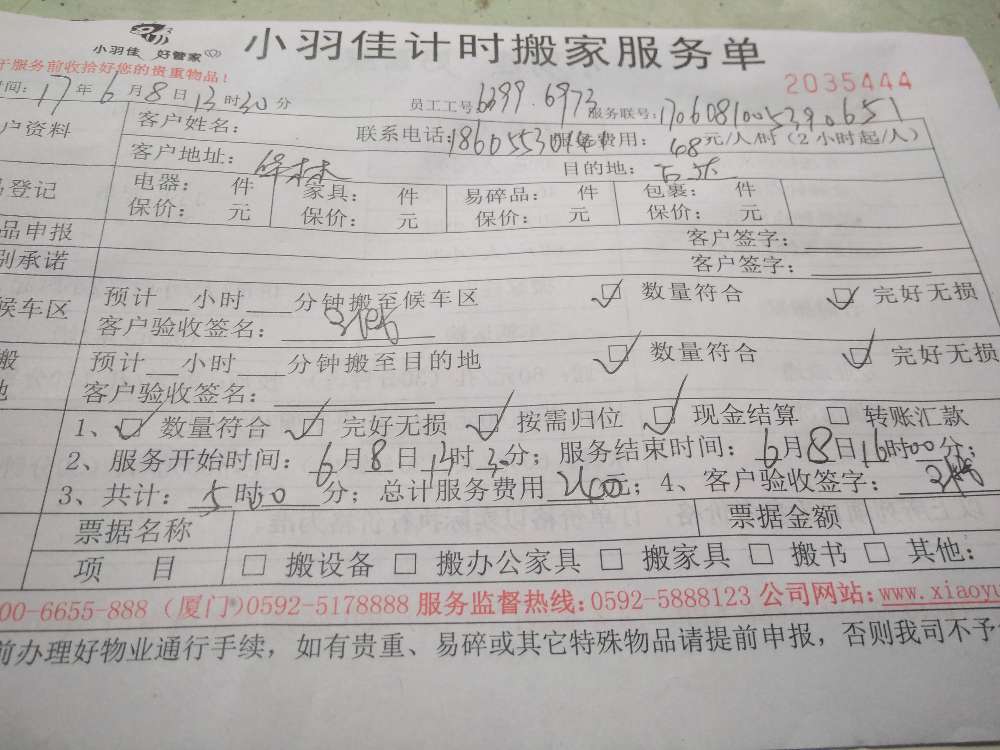 小羽佳 好管家
小羽佳计时搬家服务单
服务前收拾好您的贵重物品!
2035444
时间: 17年6月8日13时30分 员工工号 6399.6973 服务联号: 170608100539065 1
户资料 客户姓名: 联系电话: 费用: 68元/人/时(2小时起/人)
客户地址: 目的地:
登记 电器: 件 家具: 件 易碎品: 件 包裹: 件
保价: 元 保价: 元 保价: 元 保价: 元
品申报 客户签字:
别承诺 客户签字:
候车区 预计 小时 分钟搬至候车区 数量符合 完好无损
客户验收签名:
搬 预计 小时 分钟搬至目的地 数量符合 完好无损
地 客户验收签名:
1、 数量符合 完好无损 按需归位 现金结算 转账汇款
2、服务开始时间: 6月8日13时30分; 服务结束时间: 6月8日16时00分;
3、共计: 5时0分; 总计服务费用 元; 4、客户验收签字:
票据名称 票据金额
项 目 搬设备 搬办公家具 搬家具 搬书 其他:
00-6655-888(厦门)0592-5178888 服务监督热线:0592-5888123 公司网站:www.xiaoyu
前办理好物业通行手续,如有贵重、易碎或其它特殊物品请提前申报,否则我司不予